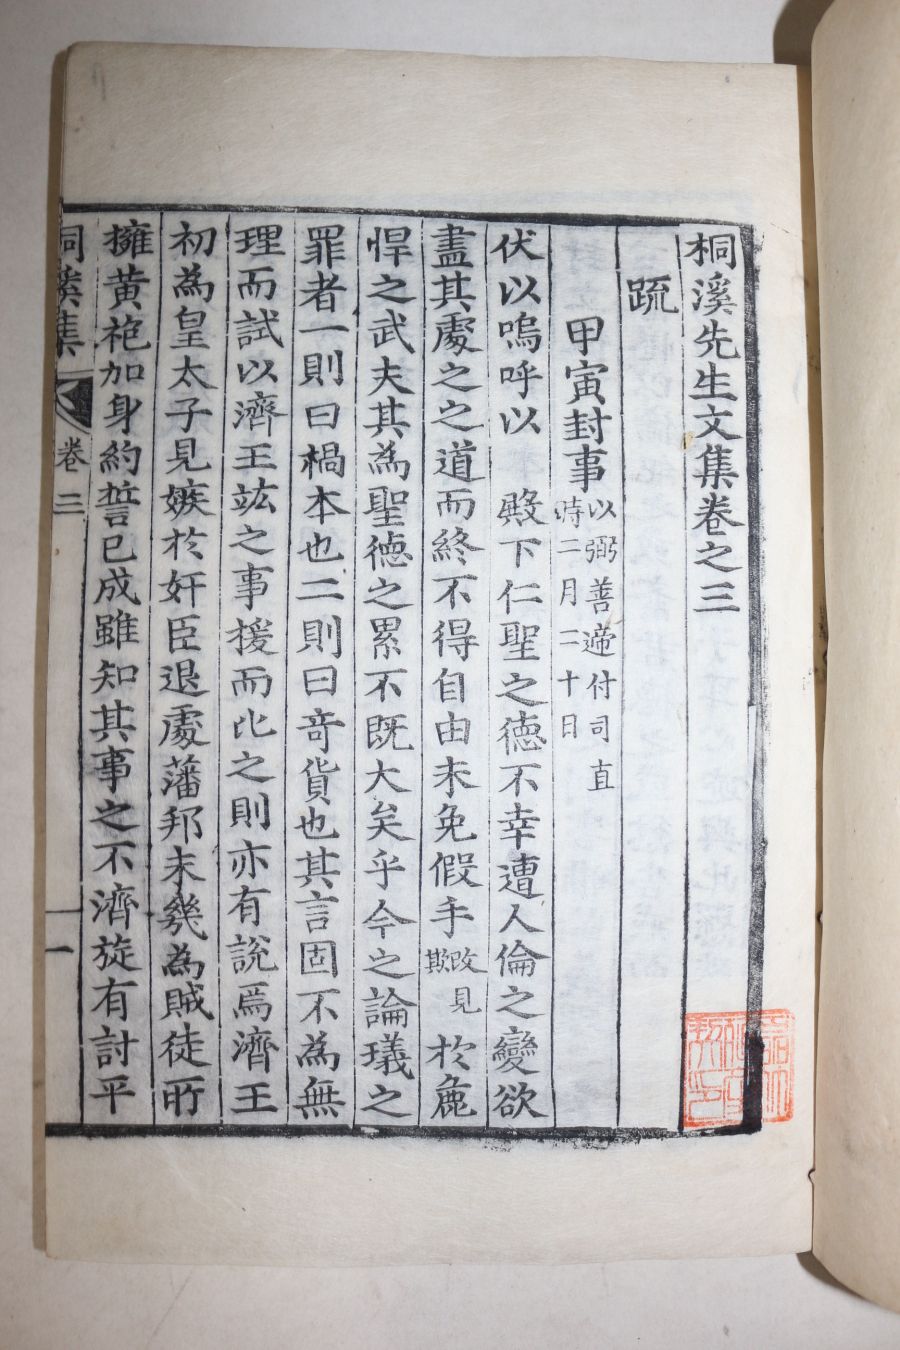 桐溪先生文集卷之三
疏
甲寅封事以弼善遞付司直時二月二十日
伏以嗚呼以殿下仁聖之德不幸遭人倫之變欲
盡其處之之道而終不得自由未免假手改見欺於麁
悍之武夫其為聖德之累不既大矣乎今之論璡之
罪者一則曰禍本也二則曰奇貨也其言固不為無
理而試以濟王竑之事援而比之則亦有說焉濟王
初為皇太子見嫉於奸臣退處藩邦未幾為賊徒所
擁黃袍加身約誓已成雖知其事之不濟旋有討平
桐溪集
卷三
一